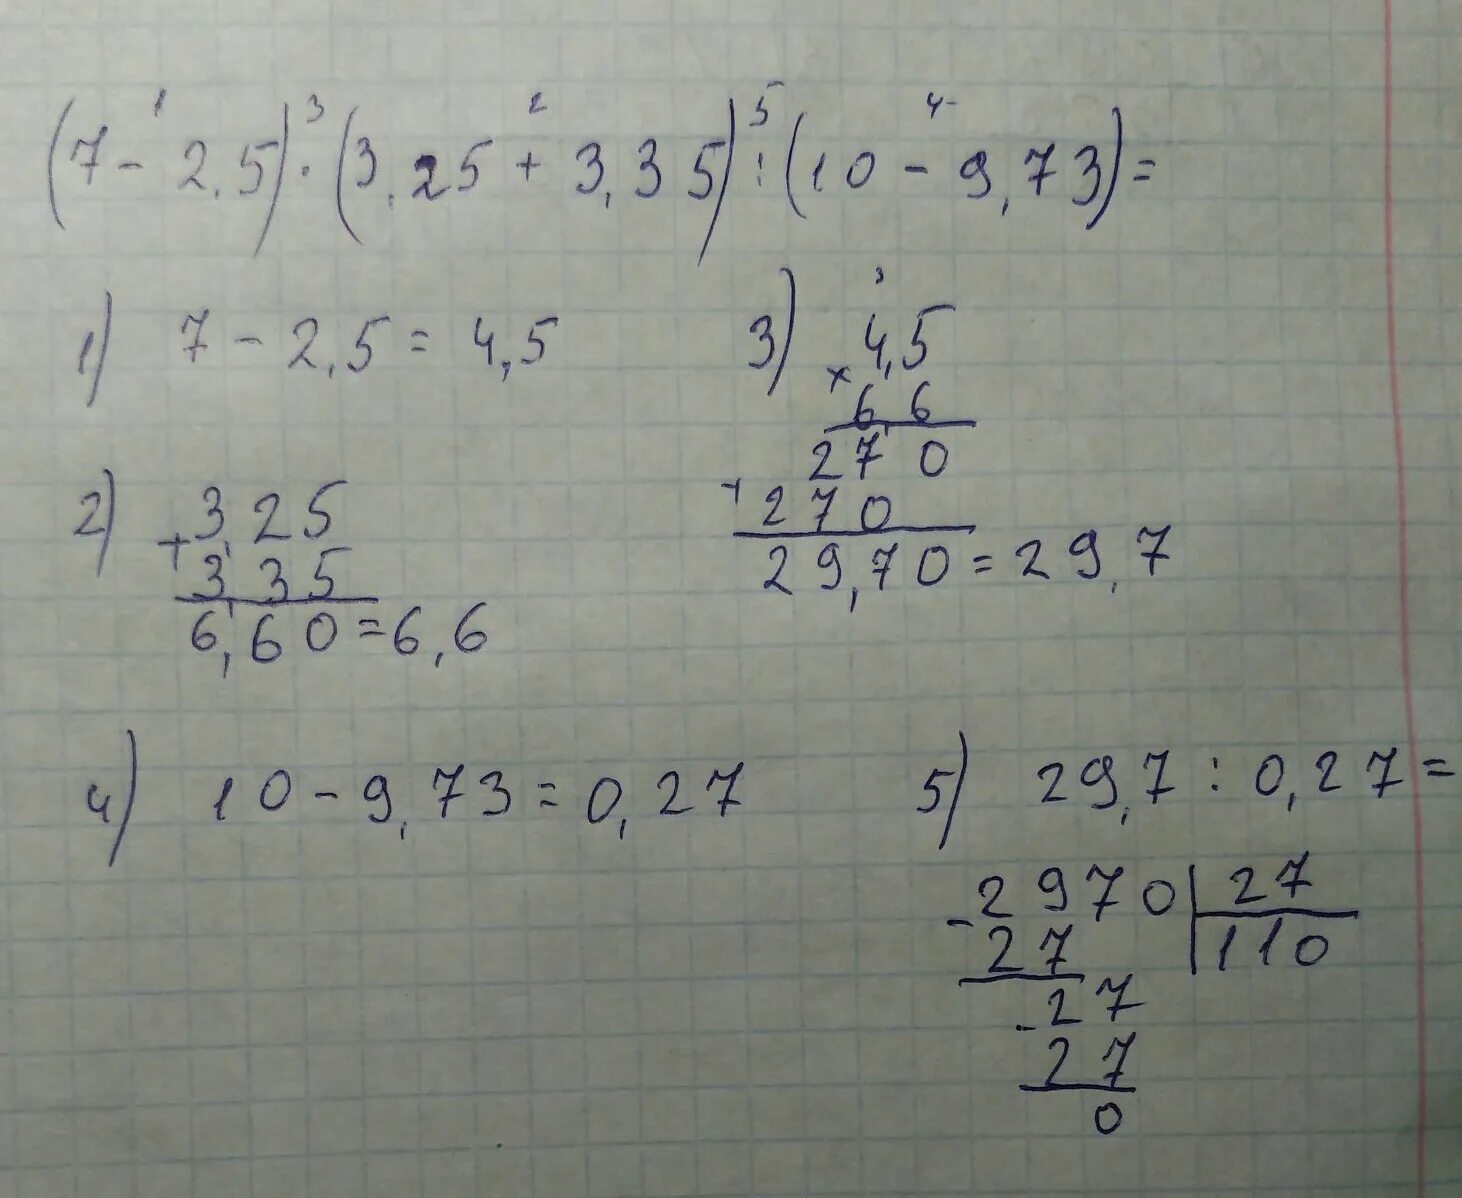 1 3 2 5 4
(7 - 2,5) · (3,25 + 3,35) : (10 - 9,73) =
1) 7 - 2,5 = 4,5
2) + 3,25
3,35
6,60 = 6,6
3) 4,5
× 6,6
270
+ 270
29,70 = 29,7
4) 10 - 9,73 = 0,27
5) 29,7 : 0,27 =
- 2970 | 27
27 | 110
- 27
27
0